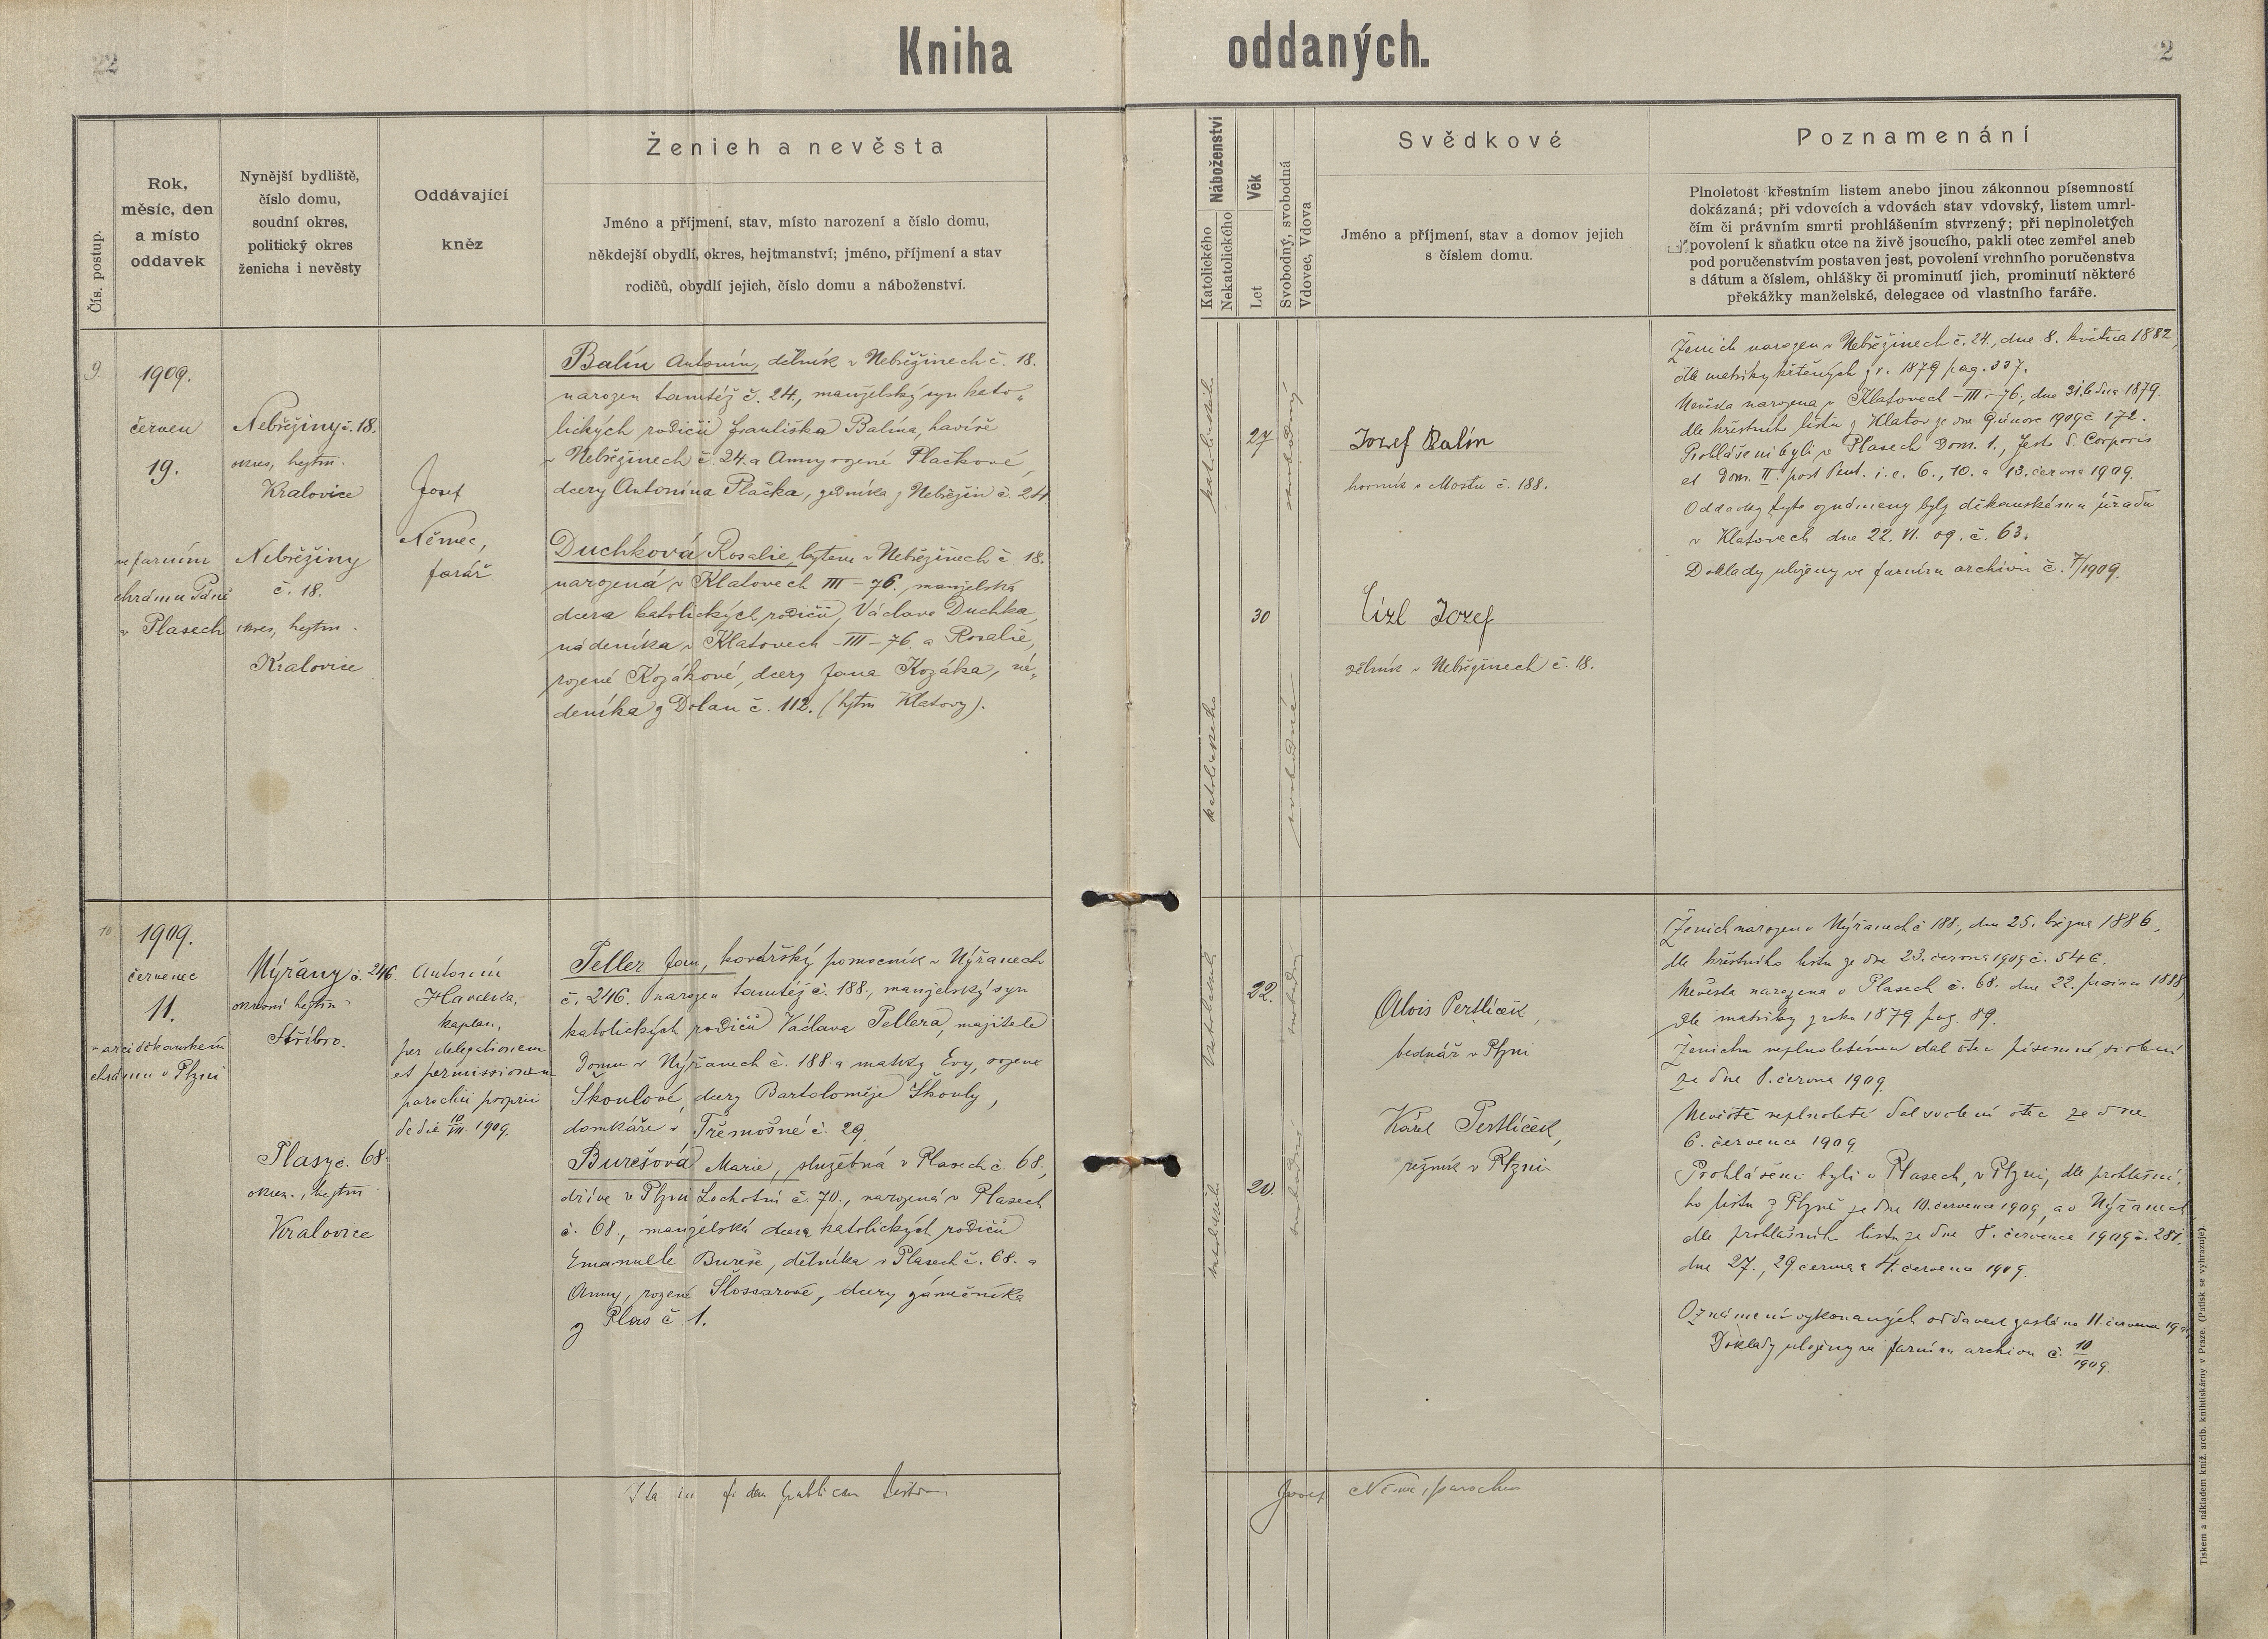 22
Kniha oddaných.
2
Čís. postup.
Rok,
měsíc, den
a místo
oddavek
Nynější bydliště,
číslo domu,
soudní okres,
politický okres
ženicha i nevěsty
Oddávající
kněz
Ženich a nevěsta
Jméno a příjmení, stav, místo narození a číslo domu,
někdejší obydlí, okres, hejtmanství; jméno, příjmení a stav
rodičů, obydlí jejich, číslo domu a náboženství.
Náboženství
Katolického
Nekatolického
Věk
Let
Svobodný, svobodná
Vdovec, Vdova
Svědkové
Jméno a příjmení, stav a domov jejich
s číslem domu.
Poznamenání
Plnoletost křestním listem anebo jinou zákonnou písemností
dokázaná; při vdovcích a vdovách stav vdovský, listem umrl-
čím či právním smrti prohlášením stvrzený; při neplnoletých
povolení k sňatku otce na živě jsoucího, pakli otec zemřel aneb
pod poručenstvím postaven jest, povolení vrchního poručenstva
s dátum a číslem, ohlášky či prominutí jich, prominutí některé
překážky manželské, delegace od vlastního faráře.
9.
1909.
červen
19.
ve farním
chrámu Páně
v Plasech
Nebřeziny č. 18.
okres, hejtm.
Kralovice
Nebřeziny
č. 18.
okres, hejtm.
Kralovice
Josef
Němec,
farář
Balín Antonín, dělník v Nebřezinech č. 18.
narozen tamtéž č. 24., manželský syn kato-
lických rodičů Františka Balína, havíře
v Nebřezinech č. 24. a Anny rozené Plačkové,
dcery Antonína Plačka, zedníka z Nebřezin č. 24
Duchková Rosalie, bytem v Nebřezinech č. 18.
narozená v Klatovech III – 76., manželská
dcera katolických rodičů, Václava Duchka
nádeníka v Klatovech – III – 76. a Rosalie,
rozené Kozákové, dcery Jana Kozáka, ná-
deníka z Dolan č. 112. (hjtm Klatovy).
katolického
27
svobodný
katolického
30
svobodná
Jozef Balín
horník v Mostu č. 188.
Cízl Jozef
dělník v Nebřezinech č. 18.
Ženich narozen v Nebřezinech č. 24., dne 8. května 1882,
dle matriky křtěných z r. 1879 pag. 337.
Nevěsta narozena v Klatovech – III – 76., dne 31. ledna 1879.
dle křestního listu z Klatov ze dne 9. února 1909 č. 172.
Prohlášeni byli v Plasech Dom. 1., Festo S. Corporis
et Dom. II. post Pent. i. e. 6., 10. a 13. června 1909.
Oddavky tyto oznámeny byly děkanskému úřadu
v Klatovech dne 22. VI. 09. č. 63.
Doklady uloženy ve farním archivu č. 7/1909.
10
1909.
červenec
11.
v arciděkanském
chrámu v Plzni
Nýřany č. 246.
okresní hejtm
Stříbro.
Plasy č. 68.
okres., hejtm
Kralovice
Antonín
Havelka,
kaplan,
per delegationem
et permissionem
parochi proprii
de die 10/VII. 1909.
Teller Jan, kovářský pomocník v Nýřanech
č. 246. narozen tamtéž č. 188., manželský syn
katolických rodičů Václava Tellera, majitele
domu v Nýřanech č. 188 a matky Evy, rozené
Škoulové, dcery Bartoloměje Škouly,
domkáře v Třemošné č. 29.
Burešová Marie, služebná v Plasech č. 68.,
dříve v Plzni Lochotín č. 70., narozená v Plasech
č. 68., manželská dcera katolických rodičů
Emanuele Bureše, dělníka v Plasech č. 68. a
Anny, rozené Šlossarové, dcery zámečníka
z Plas č. 1.
katolického
22.
svobodný
katolického
20.
svobodná
Alois Pertlíček,
bednář v Plzni
Karel Pertlíček,
řezník v Plzni
Ženich narozen v Nýřanech č. 188., dne 25. března 1886,
dle křestního listu ze dne 23. června 1909 č. 546.
Nevěsta narozena v Plasech č. 68. dne 22. prosince 1888,
dle matriky z roku 1879 pag. 89.
Ženichu neplnoletému dal otec písemné svolení
ze dne 8. června 1909.
Nevěstě neplnoleté dal svolení otec ze dne
6. července 1909.
Prohlášeni byli v Plasech, v Plzni, dle prohlašní-
ho listu z Plzně ze dne 10. července 1909., a v Nýřanech
dle prohlašního listu ze dne 8. července 1909 č. 281.
dne 27., 29. června a 4. července 1909.
Oznámení vykonaných oddavek zasláno 11. července
Doklady uloženy ve farním archivu č. 10/1909.
Ita in fidem publicam testor
Josef Němec, parochus
Tiskem a nákladem kníž. arcib. knihtiskárny v Praze. (Patisk se vyhrazuje)